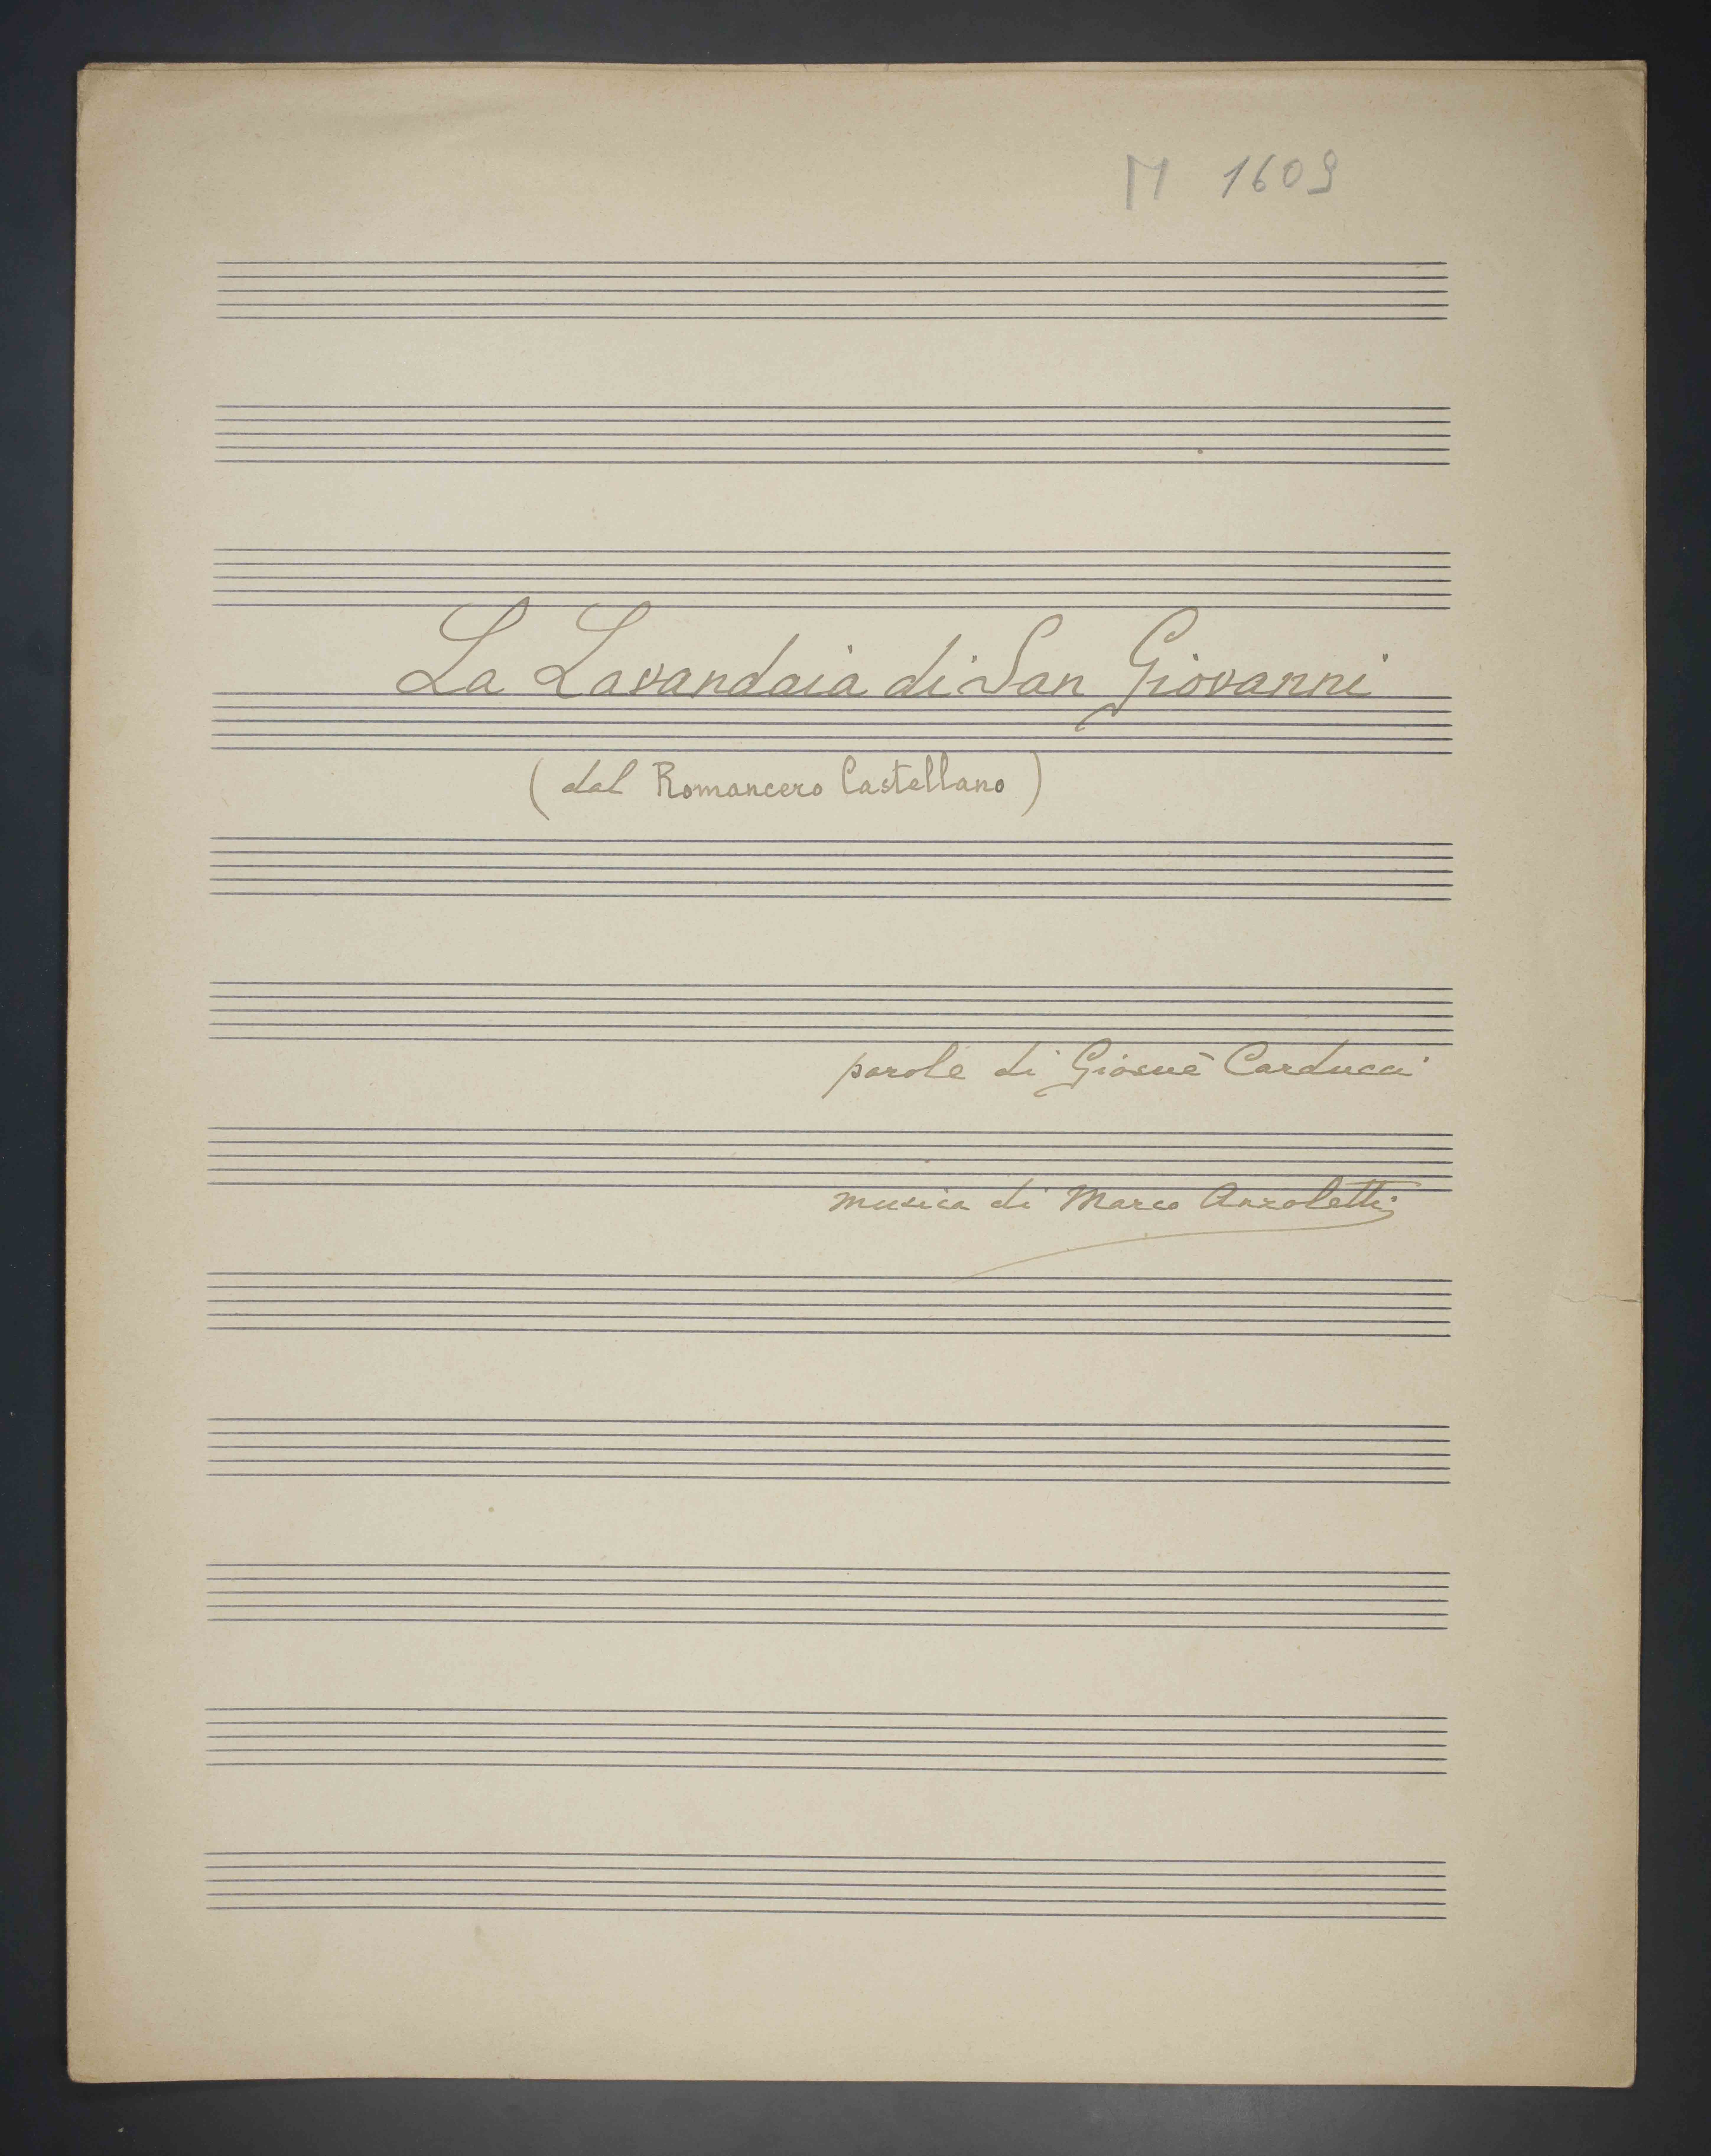 M 1609
La Lavandaia di San Giovanni
(dal Romancero Castellano)
parole di Giosuè Carducci
musica di Marco Anzoletti